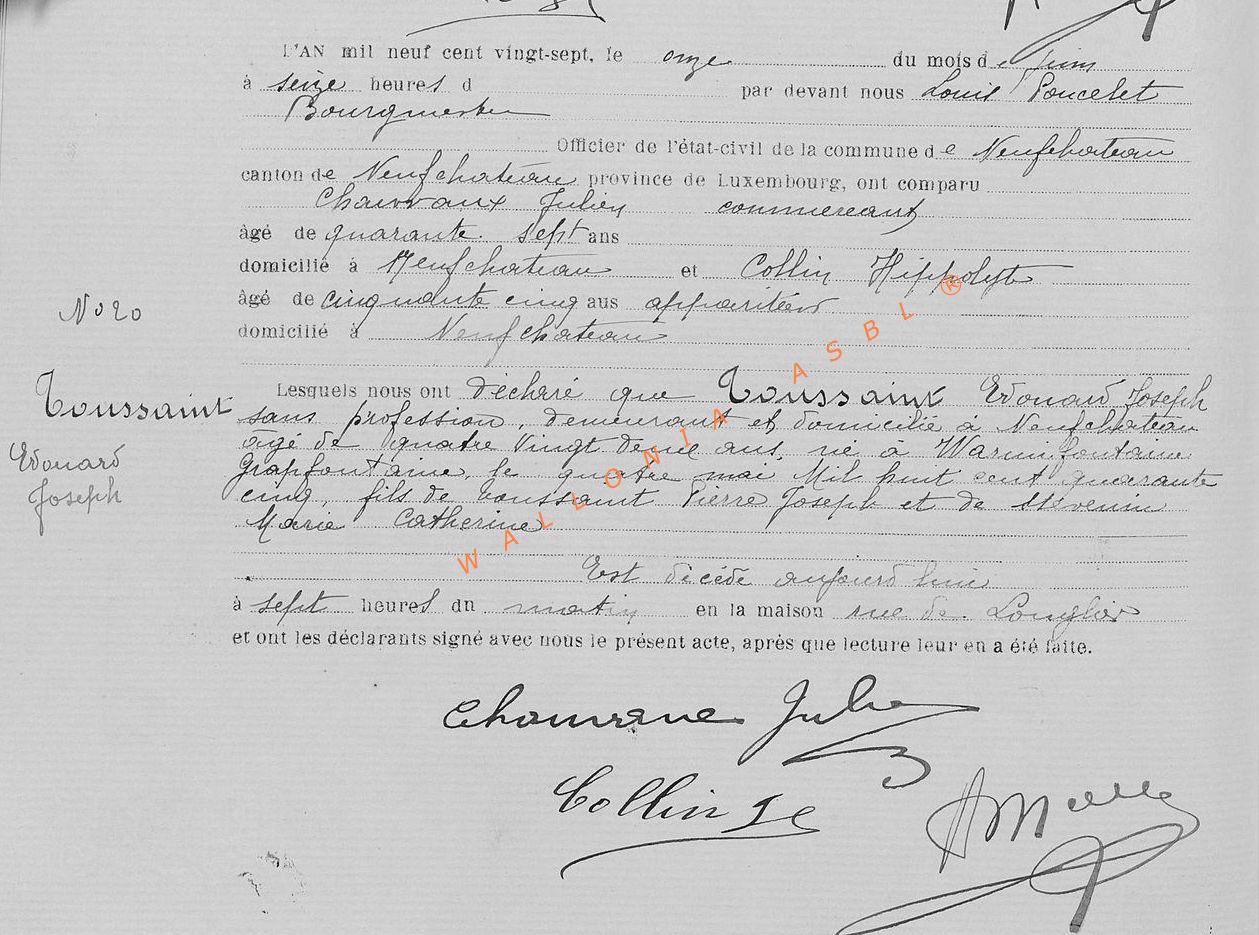 L'AN mil neuf cent vingt-sept, le onze du mois de Juin
à seize heures d par devant nous Louis Poncelet
Bourgmestre
Officier de l'état-civil de la commune de Neufchateau
canton de Neufchateau province de Luxembourg, ont comparu
Chauvaux Julien commercant
âgé de quarante sept ans
domicilié à Neufchateau et Collin Hippolyte
âgé de cinquante cinq ans appariteur
N° 20
domicilié à Neufchateau
Lesquels nous ont déclaré que Toussaint Edouard Joseph
Toussaint
sans profession, demeurant et domicilié à Neufchateau
Edouard
agé de quatre vingt deux ans, né à Warmifontaine
Joseph
Grapfontaine, le quatre mai Mil huit cent quarante
cinq, fils de Toussaint Pierre Joseph et de Stévenin
Marie Catherine
WALLONIA ASBL ®
Est décédé aujourd'hui
à sept heures du matin en la maison rue de Longlier
et ont les déclarants signé avec nous le présent acte, après que lecture leur en a été faite.
Julien
Collin